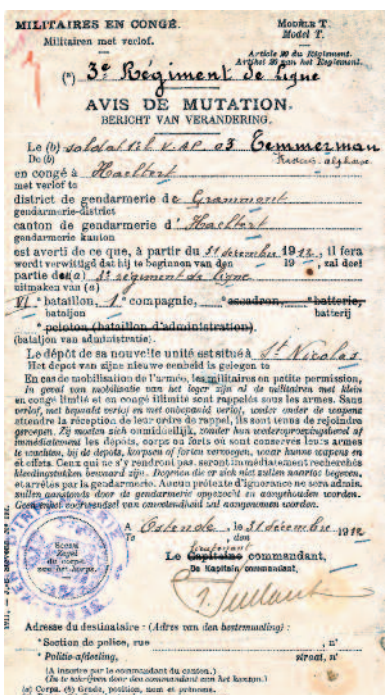 MILITAIRES EN CONGÉ.
Militairen met verlof.
MODÈLE T.
Model T.
Article 20 du Règlement.
Artikel 20 van het Reglement.
(a) 3e Régiment de ligne
AVIS DE MUTATION.
BERICHT VAN VERANDERING.
Le (b) soldat mil 03 Temmerman
De (b) François-alphonse
en congé à Haeltert
met verlof te
district de gendarmerie de Grammont
gendarmerie-district
canton de gendarmerie d' Haeltert
gendarmerie kanton
est averti de ce que, à partir du 31 décembre 1912, il fera
wordt verwittigd dat hij te beginnen van den 19 , zal deel
partie de (a) 3e régiment de ligne
uitmaken van (a)
VI e bataillon, 1e compagnie, e escadron, e batterie,
bataljon batterij
e peloton (bataillon d'administration).
(bataljon van administratie).
Le dépôt de sa nouvelle unité est situé à St Nicolas
Het depot van zijne nieuwe eenheid is gelegen to
En cas de mobilisation de l'armée, les militaires en petite permission,
In geval van mobilisatie van het leger zijn al de militairen met klein
en congé limité et en congé illimité sont rappelés sous les armes. Sans
verlof, met bepaald verlof en met onbepaald verlof, onder de wapens
attendre la réception de leur ordre de rappel, ils sont tenus de rejoindre
geroepen. Zij moeten zich onmiddellijk, zonder hun wederoproepingsbevel af
immédiatement les dépôts, corps ou forts où sont conservés leurs armes
te wachten, bij de depots, korpsen of forten vervoegen, waar hunne wapens en
et effets. Ceux qui ne s'y rendront pas, seront immédiatement recherchés
kleedingstukken bewaard zijn. Degenen die er zich niet zullen naartoe begeven,
et arrêtés par la gendarmerie. Aucun prétexte d'ignorance ne sera admis.
zullen aanstonds door de gendarmerie opgezocht en aangehouden worden.
Geen enkel voorwendsel van onwetendheid zal aangenomen worden.
A Ostende, le 31 décembre 1912
To , den
Le Capitaine commandant,
De Kapitein commandant,
Sceau
Zegel
du corps.
van het korps.
Adresse du destinataire : (Adres van den bestemmeling) :
* Section de police, rue , n°
* Politie-afdeeling, straat, n°
(A inscrire par le commandant du canton.)
(In te schrijven door den commandant van het kanton.)
(a) Corps. (b) Grade, position, nom et prénoms.